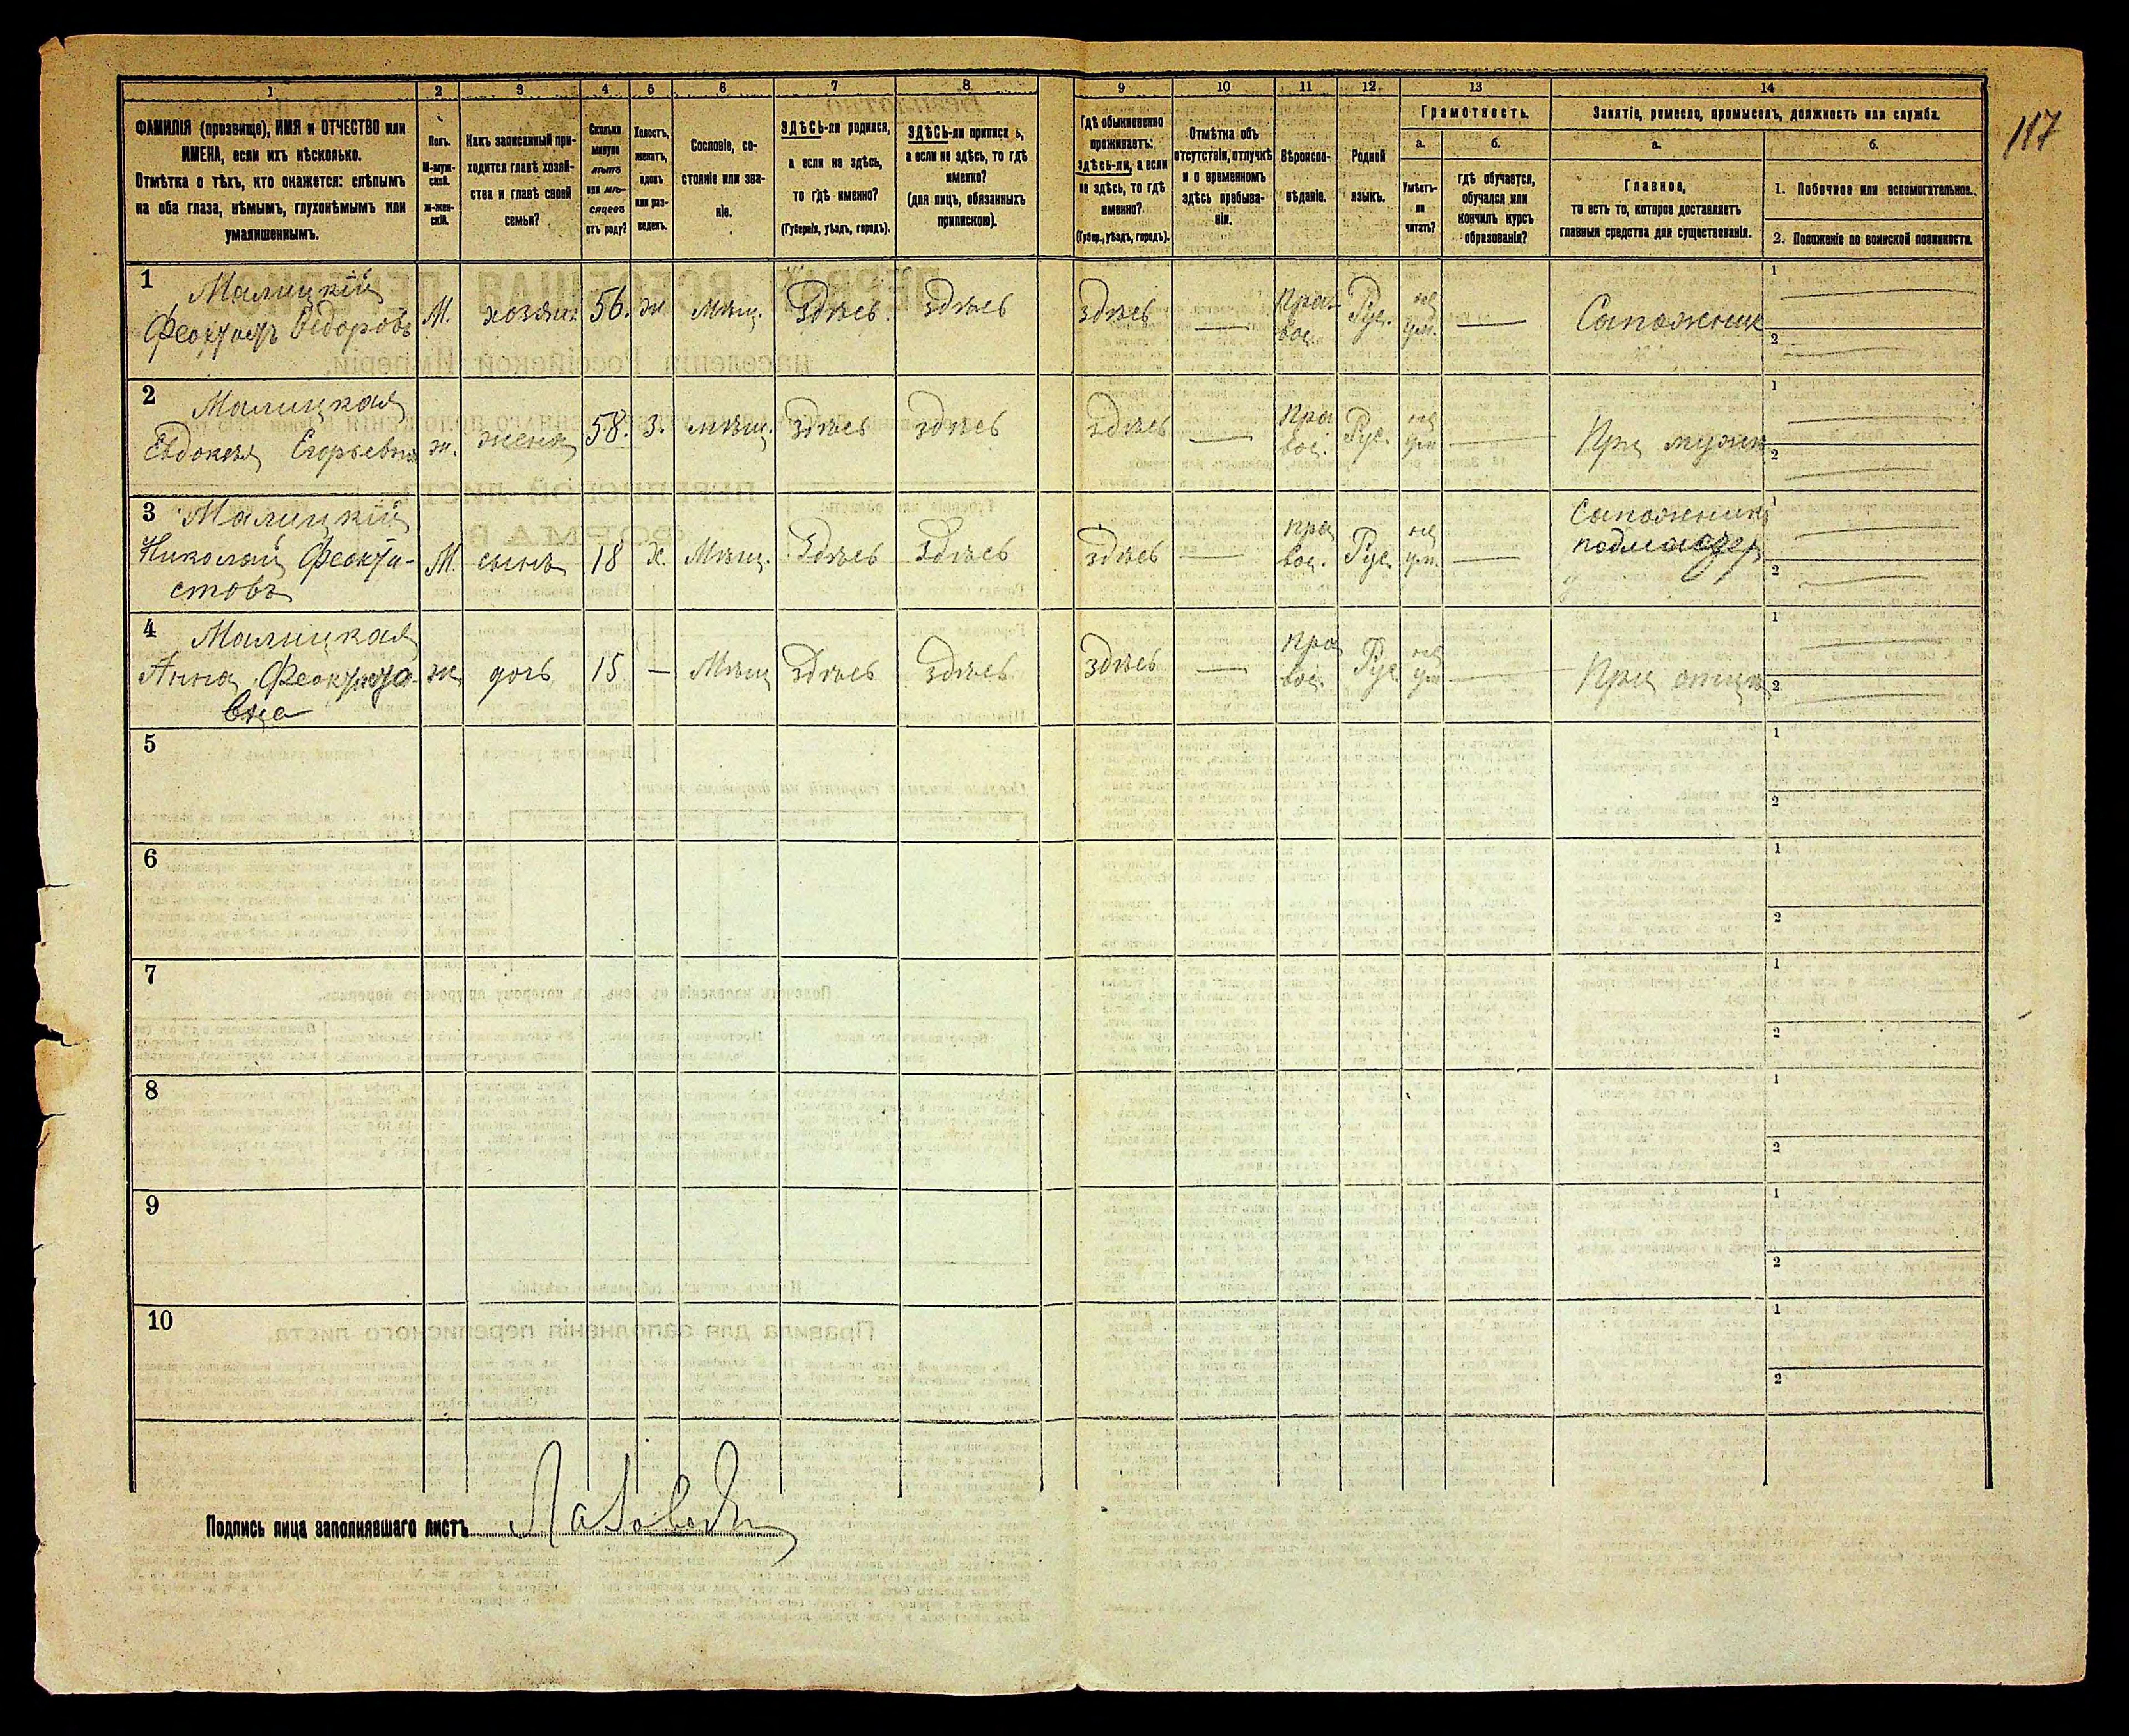 117
1 2 3 4 5 6 7 8 9 10 11 12 13 14
ФАМИЛІЯ (прозвище), ИМЯ и ОТЧЕСТВО или
ИМЕНА, если ихъ нѣсколько.
Отмѣтка о тѣхъ, кто окажется: слѣпымъ
на оба глаза, нѣмымъ, глухонѣмымъ или
умалишеннымъ.
Полъ.
М-муж-
ской.
ж-жен-
скій.
Какъ записанный при-
ходится главѣ хозяй-
ства и главѣ своей
семьи?
Сколько
минуло
лѣтъ
или мѣ-
сяцевъ
отъ роду?
Холостъ,
женатъ,
вдовъ
или раз-
веденъ.
Сословіе, со-
стояніе или зва-
ніе.
ЗДѢСЬ-ли родился,
а если не здѣсь,
то гдѣ именно?
(Губернія, уѣздъ, городъ).
ЗДѢСЬ-ли приписа ъ,
а если не здѣсь, то гдѣ
именно?
(для лицъ, обязанныхъ
припискою).
Гдѣ обыкновенно
проживаетъ:
здѣсь-ли, а если
не здѣсь, то гдѣ
именно?
(Губер., уѣздъ, городъ).
Отмѣтка объ
отсутствіи, отлучкѣ
и о временномъ
здѣсь пребыва-
ніи.
Вѣроиспо-
вѣданіе.
Родной
языкъ.
Грамотность.
а. б.
Умѣетъ-
ли
читать?
гдѣ обучается,
обучался или
кончилъ курсъ
образованія?
Занятіе, ремесло, промыселъ, должность или служба.
а. б.
Главное,
то есть то, которое доставляетъ
главныя средства для существованія.
1. Побочное или вспомогательное.
2. Положеніе по воинской повинности.
1 Малицкій
Феоктистъ Ѳедоровъ М. хозяин. 56. ж Мѣщ. Здѣсь. Здѣсь здѣсь — Пра-
вос. Рус. не
ум. — Сапожник 1
2
2 Малицкая
Евдокія Егорьевна ж. жена 58. З. мѣщ. Здѣсь здѣсь здѣсь — Пра
вос. Рус. не
ум — При мужѣ 1
2
3 Малицкій
Николай Феокти-
стовъ М. сынъ 18 Х. Мѣщ. Здѣсь Здѣсь здѣсь — Пра
вос. Рус. не
ум. — Сапожник
подмастер 1
2
4 Малицкая
Анна Феоктисто-
вна ж дочь 15 — Мѣщ здѣсь здѣсь здѣсь — Пра
вос. Рус не
ум — При отцѣ 1
2
5 1
2
6 1
2
7 1
2
8 1
2
9 1
2
10 1
2
Подпись лица заполнявшаго листъ